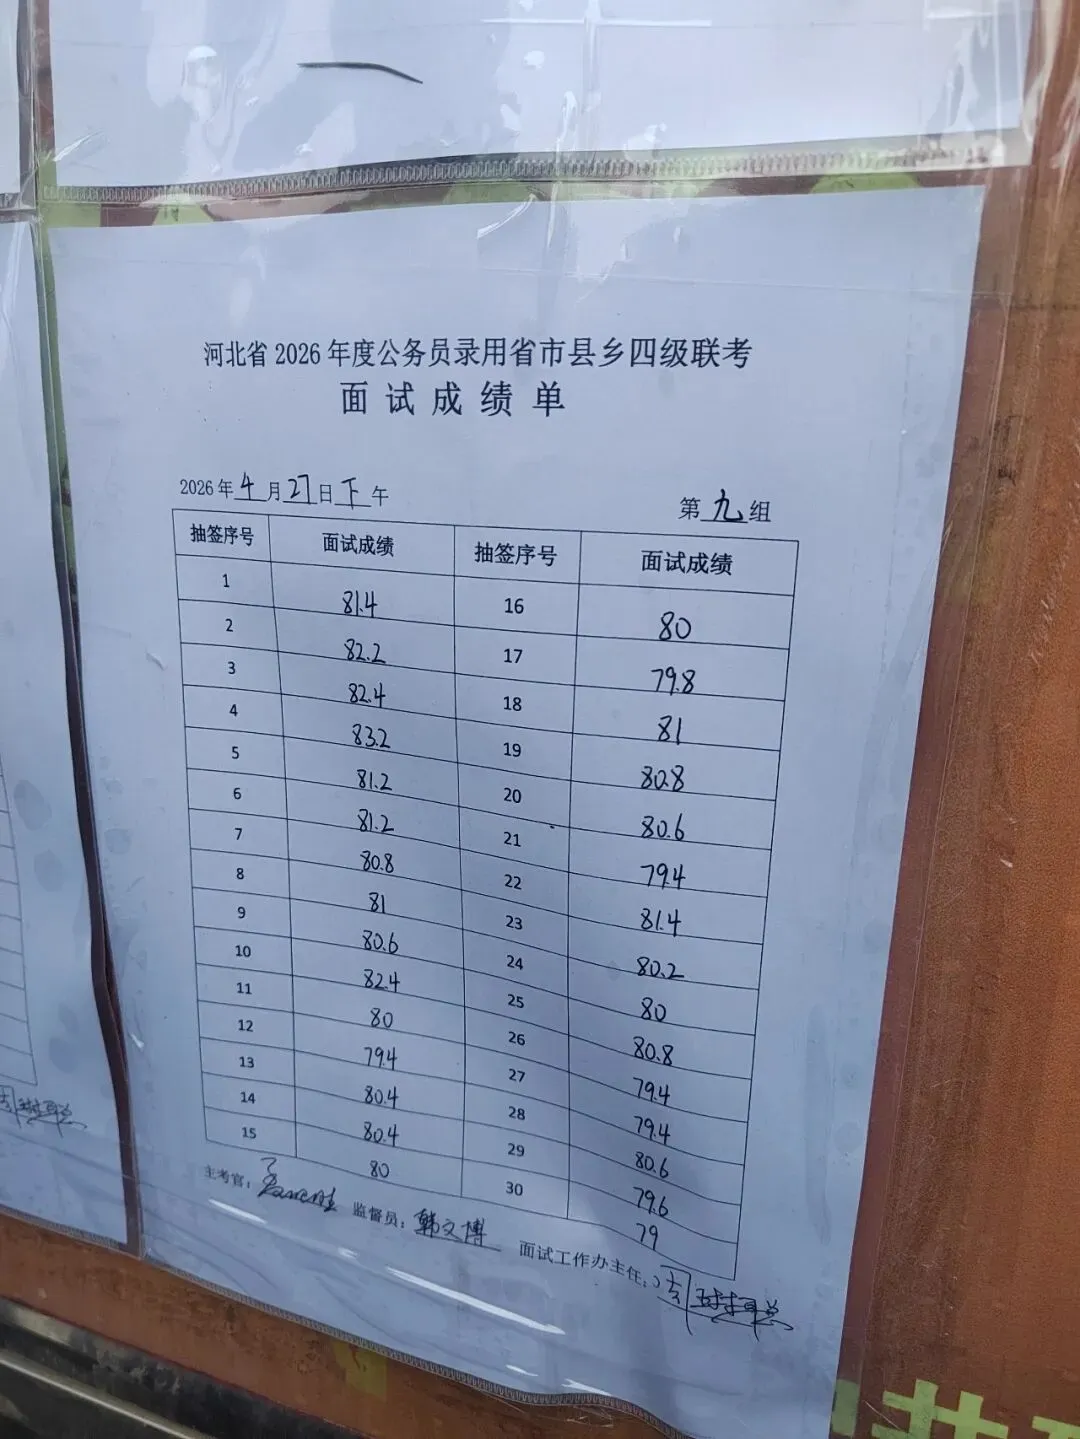 河北省2026年度公务员录用省市县乡四级联考
面试成绩单
2026年4月27日下午 第九组
抽签序号 面试成绩 抽签序号 面试成绩
1 81.4 16 80
2 82.2 17 79.8
3 82.4 18 81
4 83.2 19 80.8
5 81.2 20 80.6
6 81.2 21 79.4
7 80.8 22 81.4
8 81 23 80.2
9 80.6 24 80
10 82.4 25 80.8
11 80 26 79.4
12 79.4 27 79.4
13 80.4 28 80.6
14 80.4 29 79.6
15 80 30 79
主考官: 监督员:韩文博 面试工作办主任: